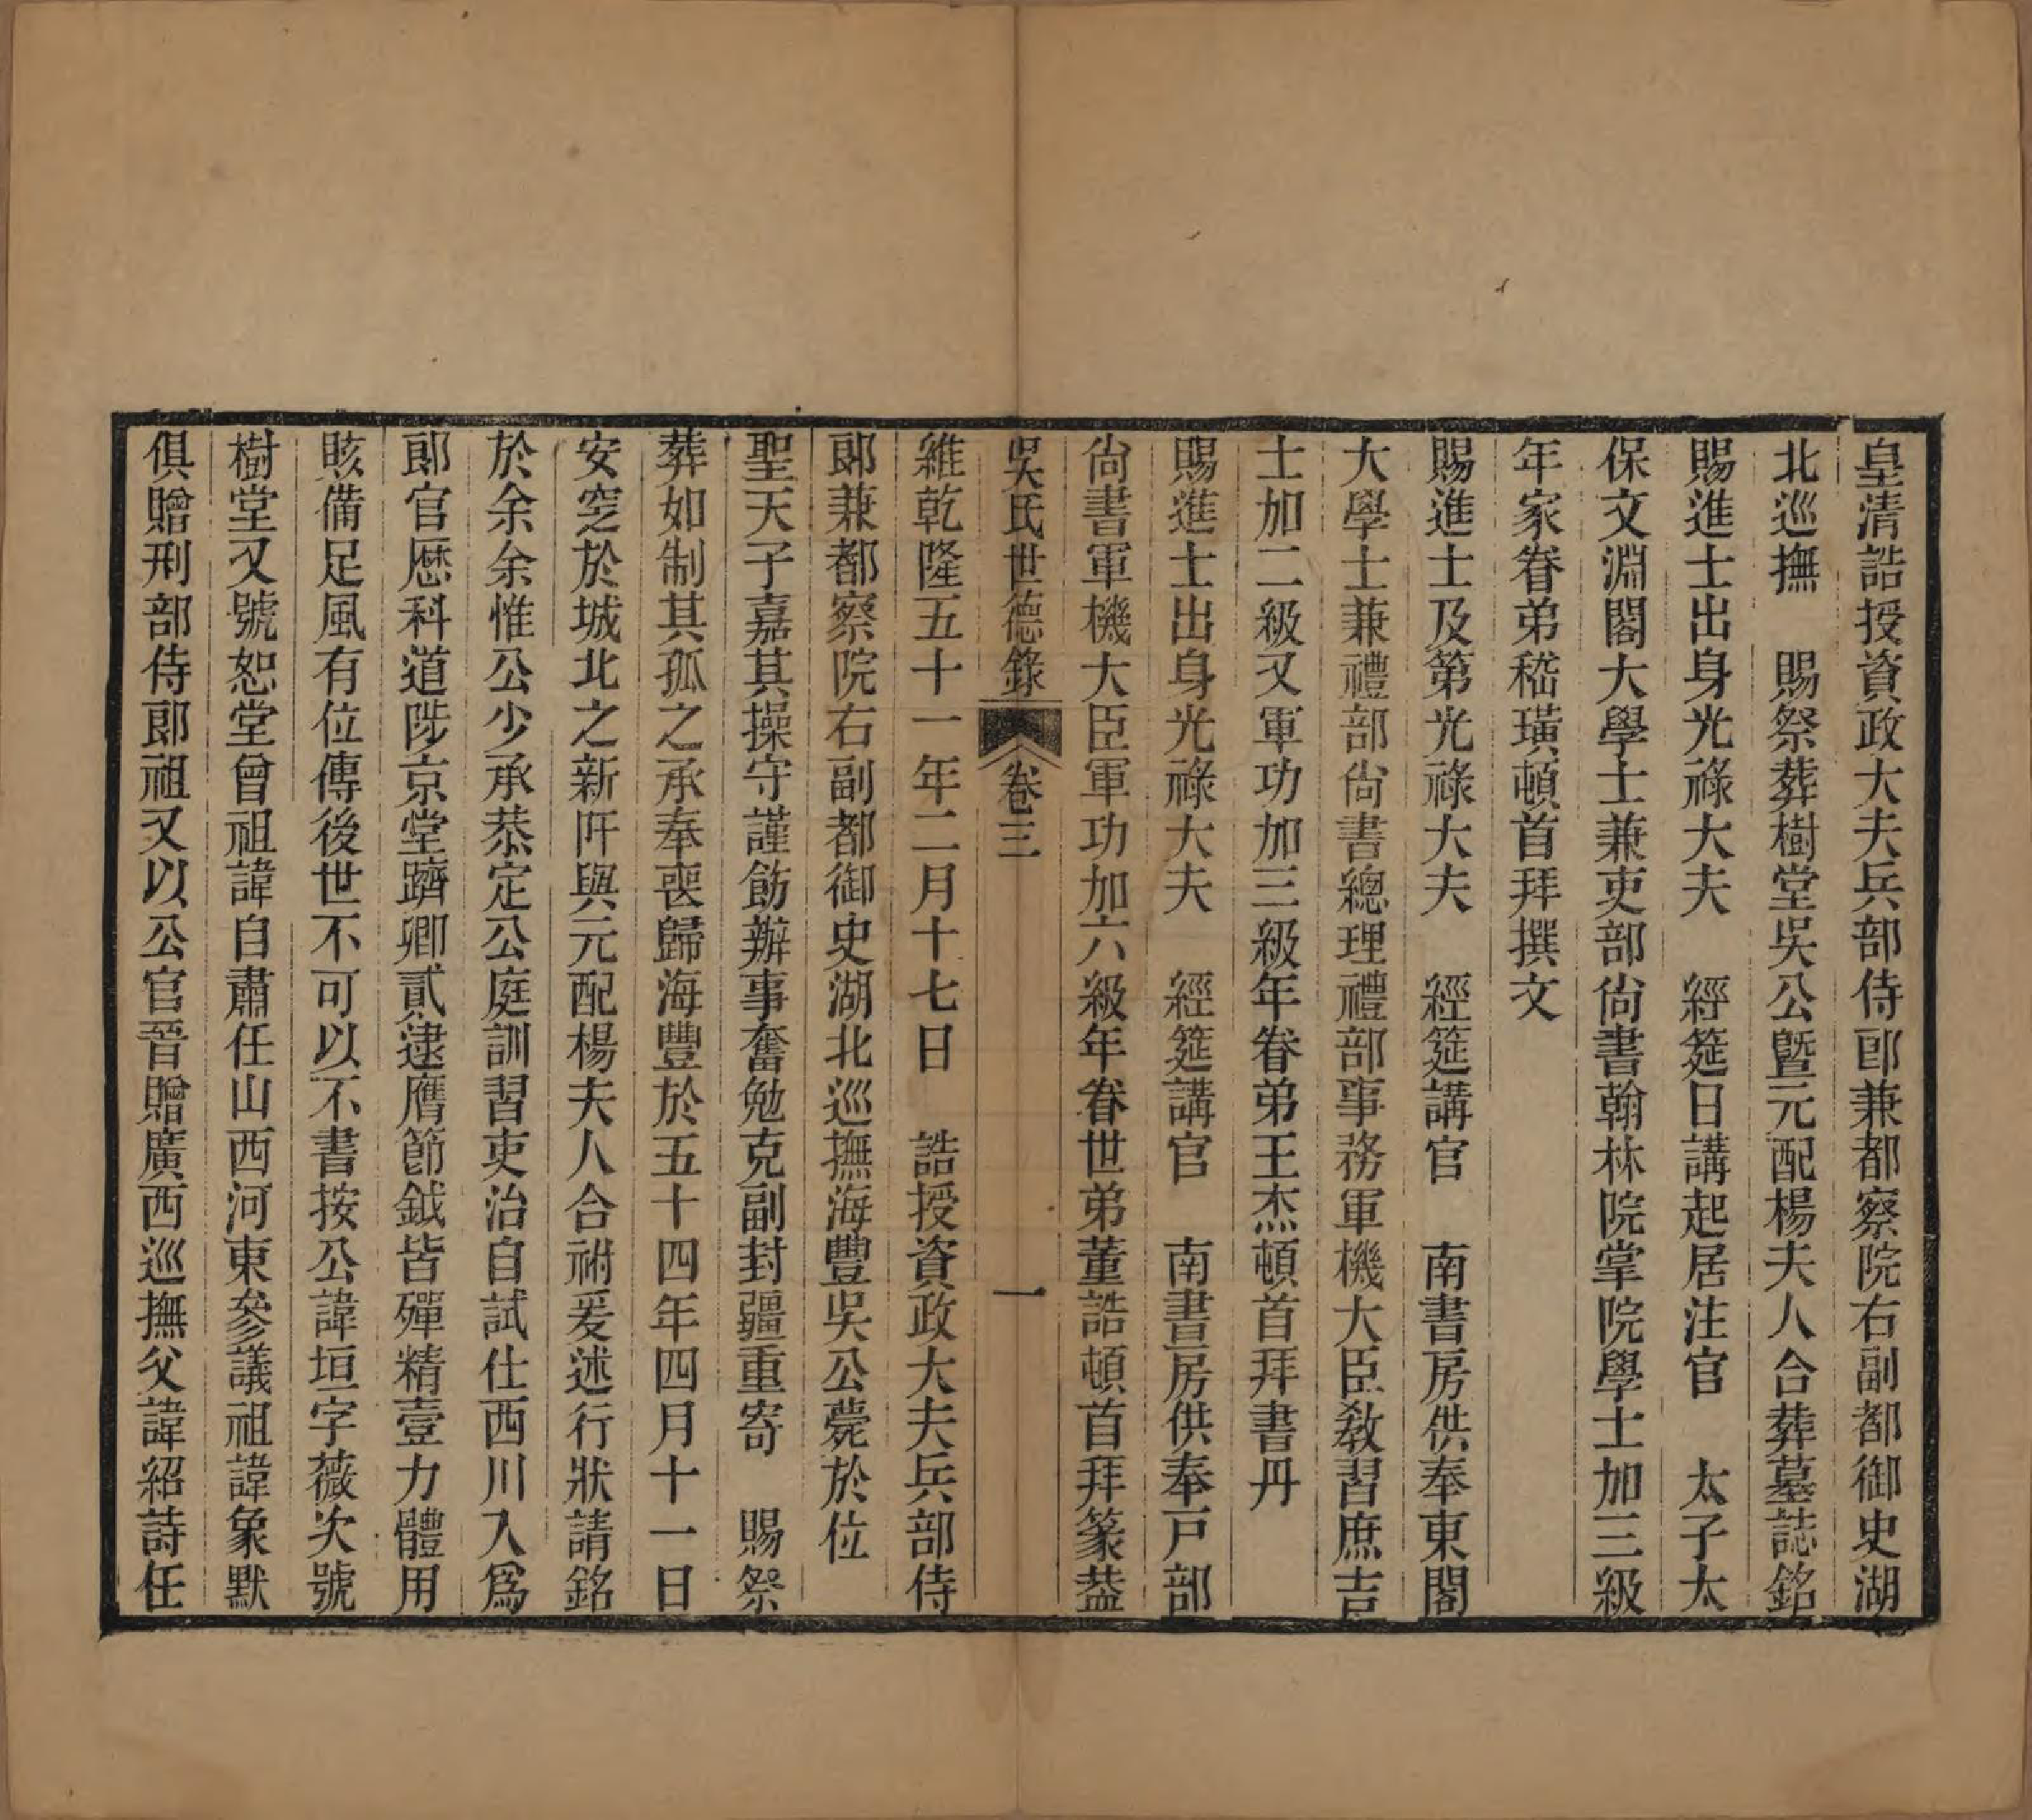 皇清誥授資政大夫兵部侍郎兼都察院右副都御史湖
北巡撫　賜祭葬樹堂吳公暨元配楊夫人合葬墓誌銘
賜進士出身光祿大夫　經筵日講起居注官　太子太
保文淵閣大學士兼吏部尙書翰林院掌院學士加三級
年家眷弟嵇璜頓首拜撰文
賜進士及第光祿大夫　經筵講官　南書房供奉東閣
大學士兼禮部尙書總理禮部事務軍機大臣敎習庶吉
士加二級又軍功加三級年眷弟王杰頓首拜書丹
賜進士出身光祿大夫　經筵講官　南書房供奉戸部
尙書軍機大臣軍功加六級年眷世弟董誥頓首拜篆葢
吳氏世德錄　卷三　一
維乾隆五十一年二月十七日　誥授資政大夫兵部侍
郎兼都察院右副都御史湖北巡撫海豐吳公薨於位
聖天子嘉其操守謹飭辦事奮勉克副封疆重寄　賜祭
葬如制其孤之承奉喪歸海豐於五十四年四月十一日
安窆於城北之新阡與元配楊夫人合祔爰述行狀請銘
於余余惟公少承恭定公庭訓習吏治自試仕西川入爲
郎官歷科道陟京堂躋卿貳逮膺節鉞皆殫精壹力體用
賅備足風有位傳後世不可以不書按公諱垣字薇次號
樹堂又號恕堂曾祖諱自肅任山西河東參議祖諱象默
俱贈刑部侍郎祖又以公官晉贈廣西巡撫父諱紹詩任